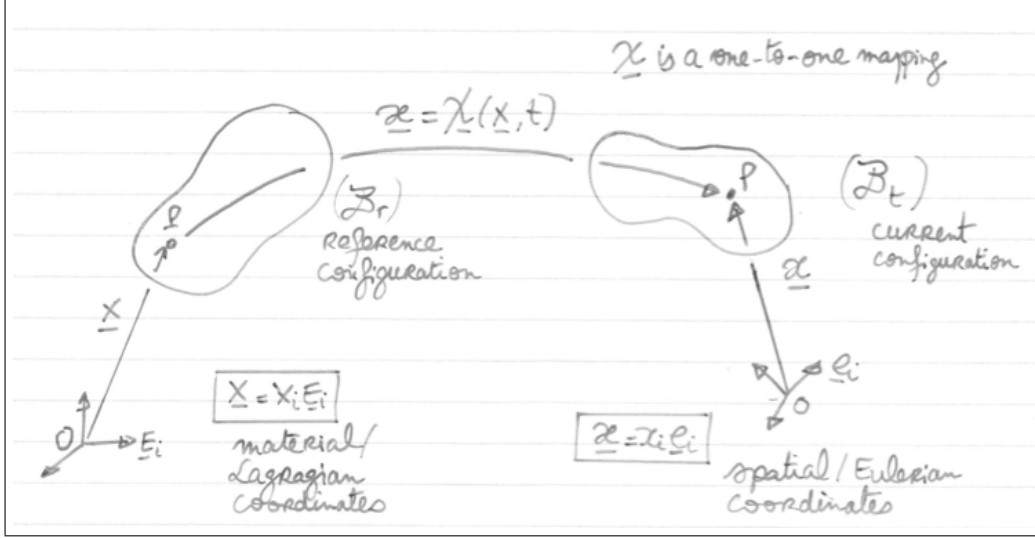 χ is a one-to-one mapping
x = χ(X,t)
P
P
(B_r)
reference
configuration
(B_t)
current
configuration
X
x
X = X_i E_i
O
E_i
material/
Lagragian
coordinates
e_i
O
x = x_i e_i
spatial/Eulerian
coordinates